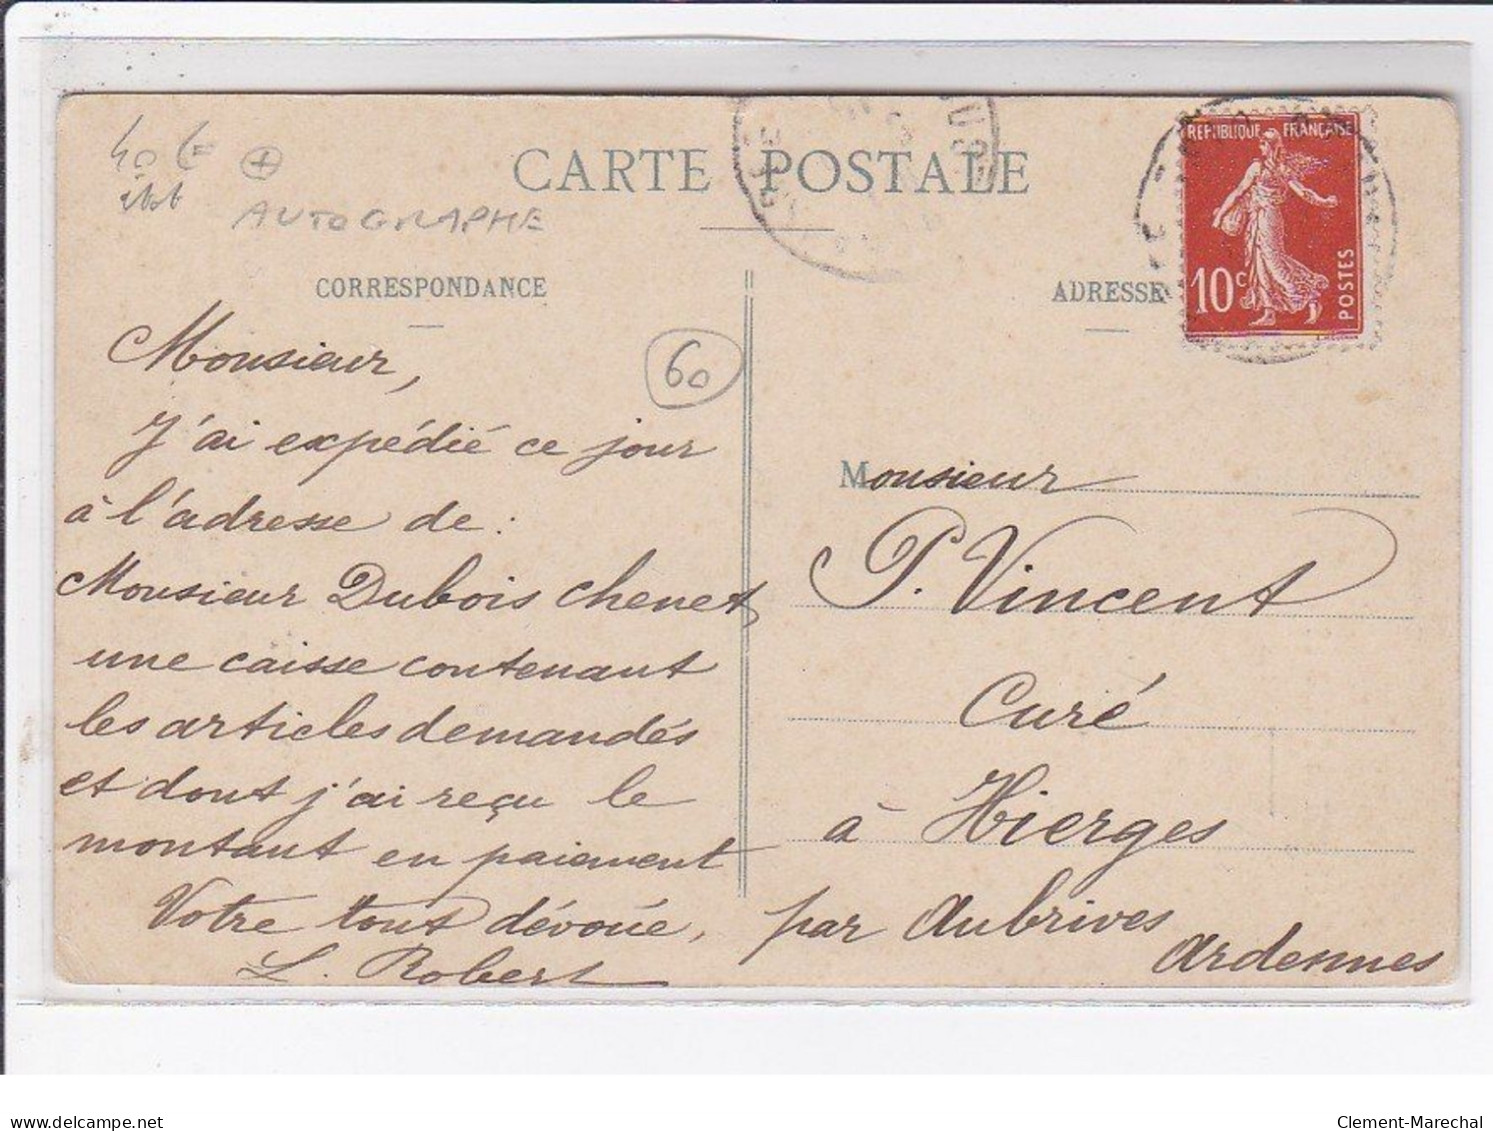 40 €
AUTOGRAPHE
CARTE POSTALE
CORRESPONDANCE
ADRESSE
REPUBLIQUE FRANÇAISE
10c
POSTES
60
Monsieur,
J'ai expédié ce jour
à l'adresse de :
Monsieur Dubois Chenet
une caisse contenant
les articles demandés
et dont j'ai reçu le
montant en paiement
Votre tout dévoué,
L. Robert
Monsieur
P. Vincent
Curé
à Hierges
par Aubrives
Ardennes
delcampe.net
Clement-Marechal